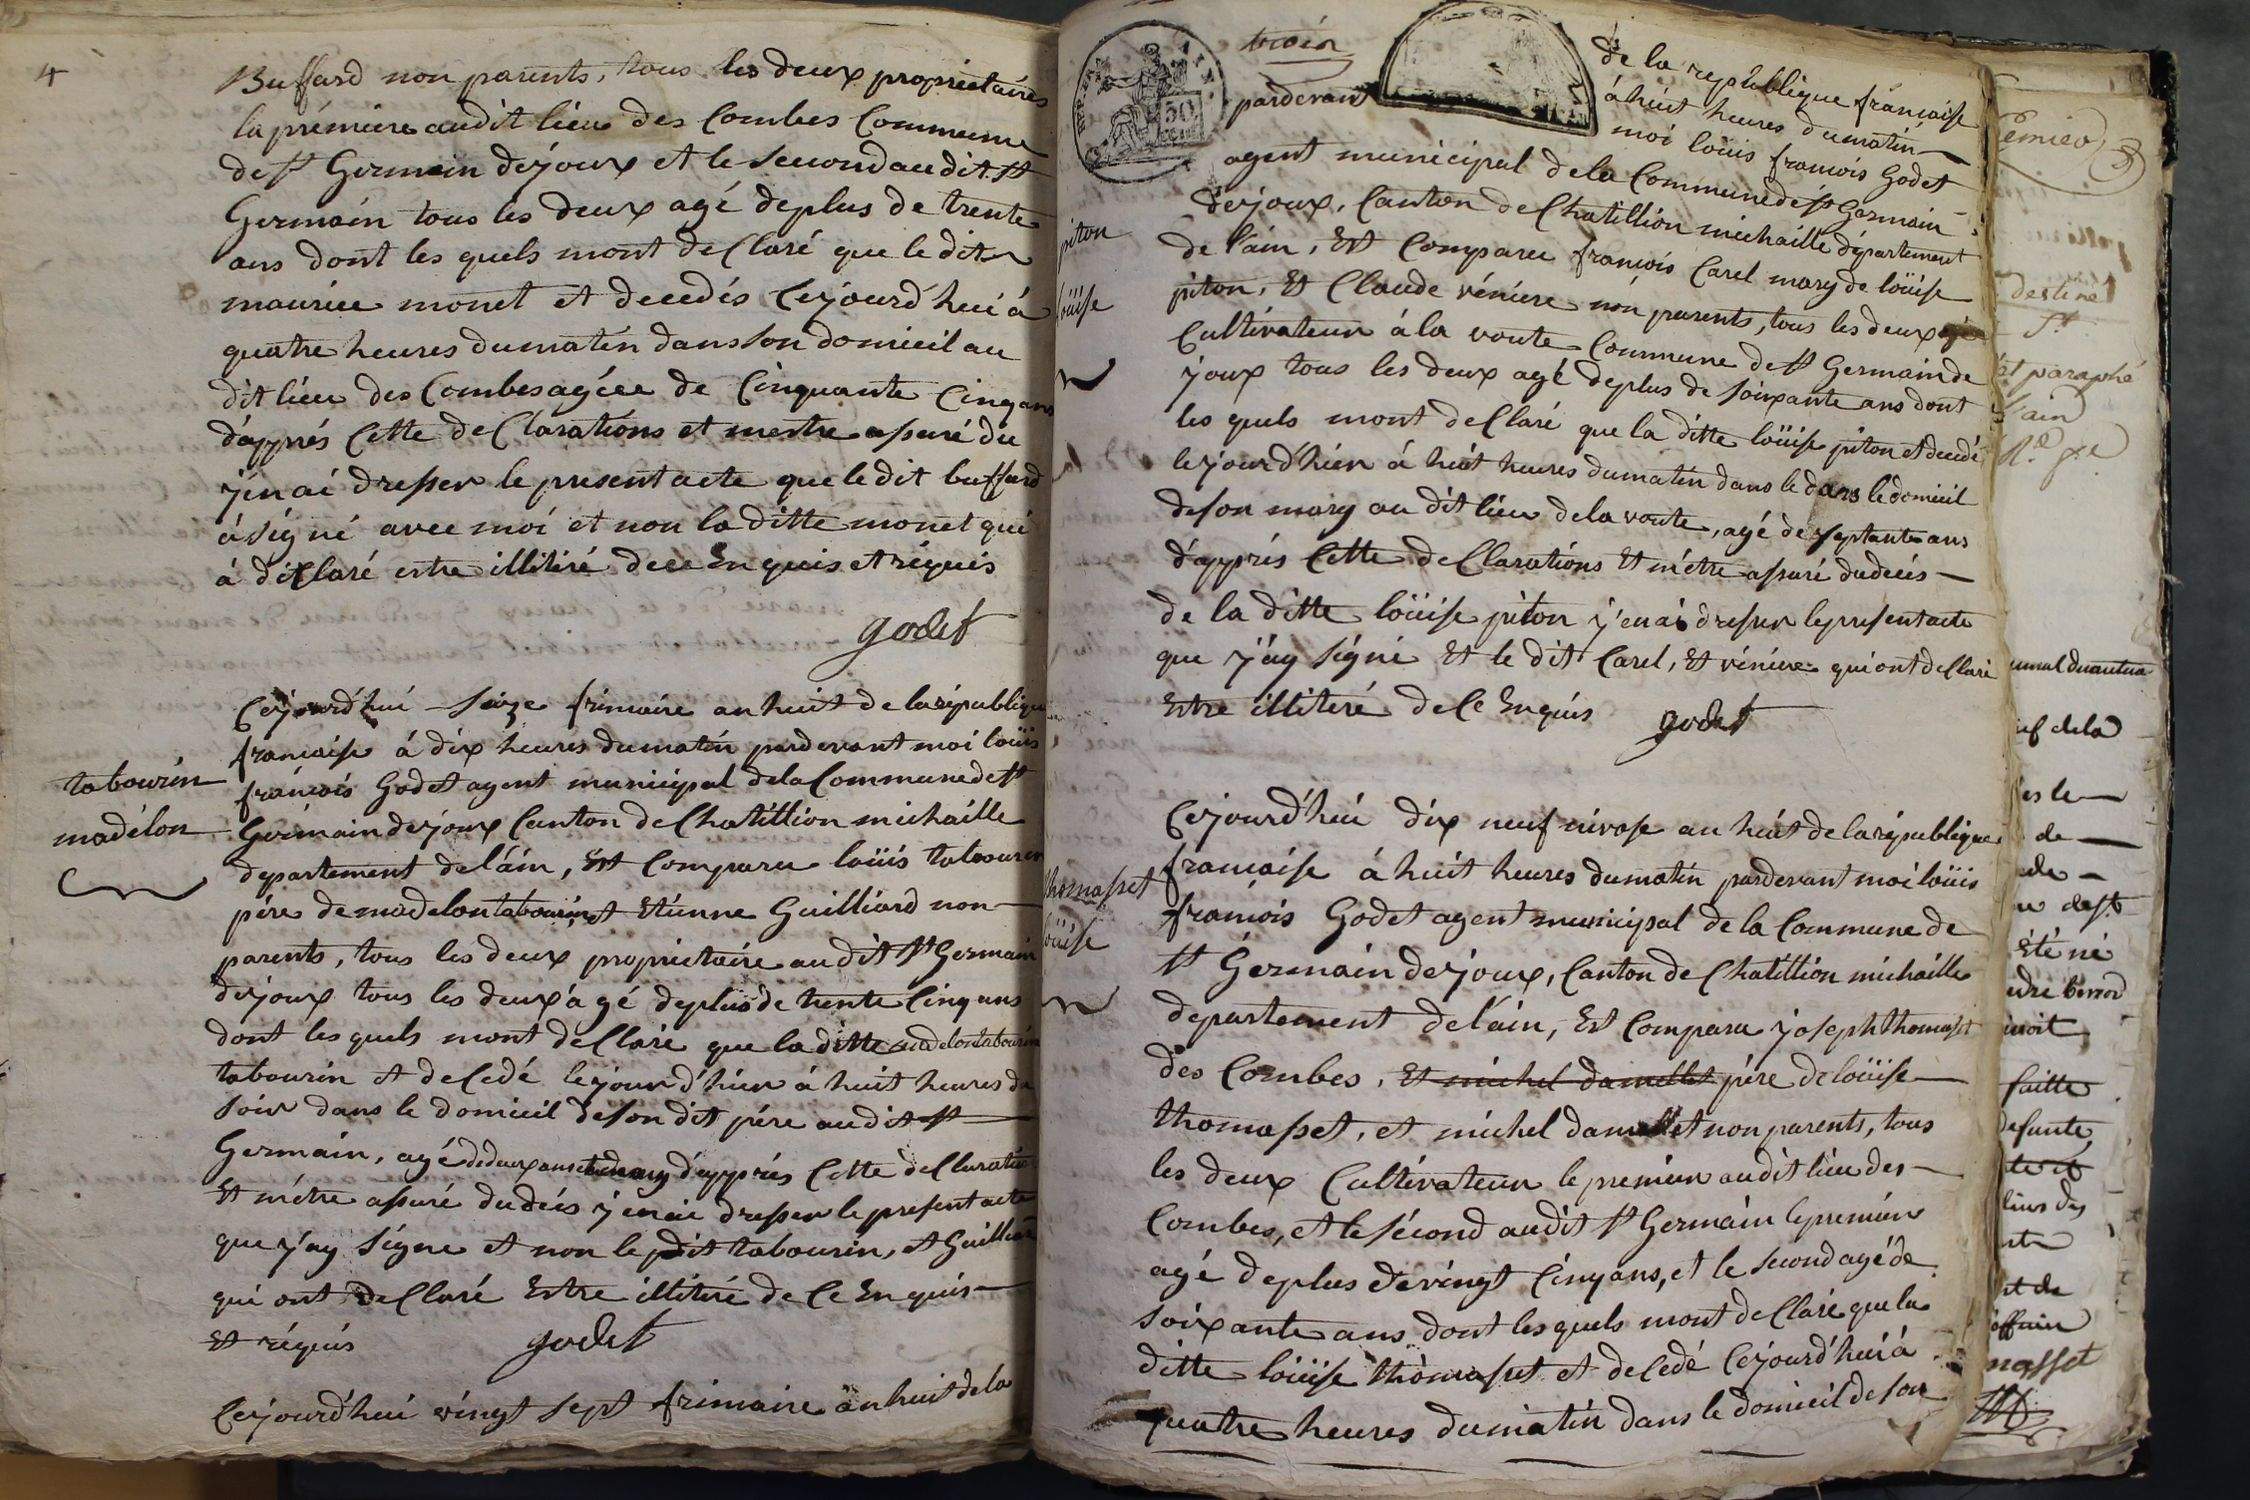 4
Buffard non parents, tous les deux proprietaires
la premiere audit lieu des Combes Commune
de st Germain dejoux et le second audit st
Germain tous les deux agé deplus de trente
ans dont les quels mont declaré que le dit
maurice monet et decedés Cejourd'hui à
quatre heures dumatin dansson domicil au
dit lieu des Combes agéee de Cinquante Cinq ans
d'apprés Cette declarations et mestre assuré du
j'enai dresser le present acte que le dit buffard
à signé avec moi et non la ditte monet qui
à declaré estre illitéré dece Enquis et réquis
godet
tabourin
madélon
Cejourd'hui seize frimaire an huit de la république
francaise à dix heures dumatin pardevant moi loüis
francois Godet agent municipal dela Commune de st
Germain dejoux Canton de Chatillion michaille
departement de l'ain, Est Comparu loüis tabourin
pére de madelon tabourin, et Etienne Guilliard non
parents, tous les deux proprietaire audit st Germain
dejoux tous les deux agé deplus de trente Cinq ans
dont les quels mont declaré que la ditte madelon tabourin
tabourin et decedé lejour d'hier à huit heures du
soir dans le domicil deson dit pére audit st
Germain, agé dedeux ans et demy d'apprés Cette declaration
Et métre assuré dudecés j'enai dresser le present acte
que j'ay signe et non le dit tabourin, et Guilliard
qui ont declaré Estre illitéré de Ce Enquis
Et réquis
godet
Cejourd'hui vingt sept frimaire an huit de la
trois
de la republique francaise
à huit heures dumatin
pardevant
moi loüis francois Godet
agent municipal dela Commune de st Germain
dejoux, Canton de Chatillion michaille département
de l'ain, Est Comparu francois Carel mary de loüise
piton, Et Claude véniere non parents, tous les deux
Cultivateur à la voute Commune de st Germain de
joux tous les deux agé deplus de soixante ans dont
les quels mont declaré que la ditte loüise piton et decedé
lejourd'hier à huit heures dumatin dans le dans le domicil
deson mary au dit lieu dela voute, agé de septante ans
d'apprés Cette declarations Et métre assuré dudecés
de la ditte loüise piton j'enai dresser le present acte
que j'ay signé Et le dit Carel, Et véniere qui ont declaré
Estre illiteré de Ce Enquis
godet
piton
loüise
thomasset
loüise
Cejourd'hui dix neuf nivose an huit de la république
francaise à huit heures dumatin pardevant moi loüis
francois Godet agent municipal de la Commune de
st Germain dejoux, Canton de Chatillion michaille
departement de l'ain, Est Comparu joseph thomasset
des Combes, Et michel damellet pére de loüise
thomasset, et michel damellet non parents, tous
les deux Cultivateur le premier audit lieu des
Combes, et le sécond audit st Germain le premier
agé deplus de vingt Cinq ans, et le second agé de
soixante ans dont les quels mont declaré que la
ditte loüise thomasset et decedé Cejourd'hui à
quatre heures dumatin dans le domicil de son
destiné
St
et paraphé
l'ain
de la
de
Eté né
faitte